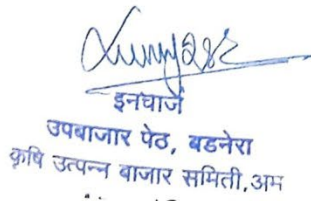 इनचार्ज
उपबाजार पेठ, बडनेरा
कृषि उत्पन्न बाजार समिती,अम